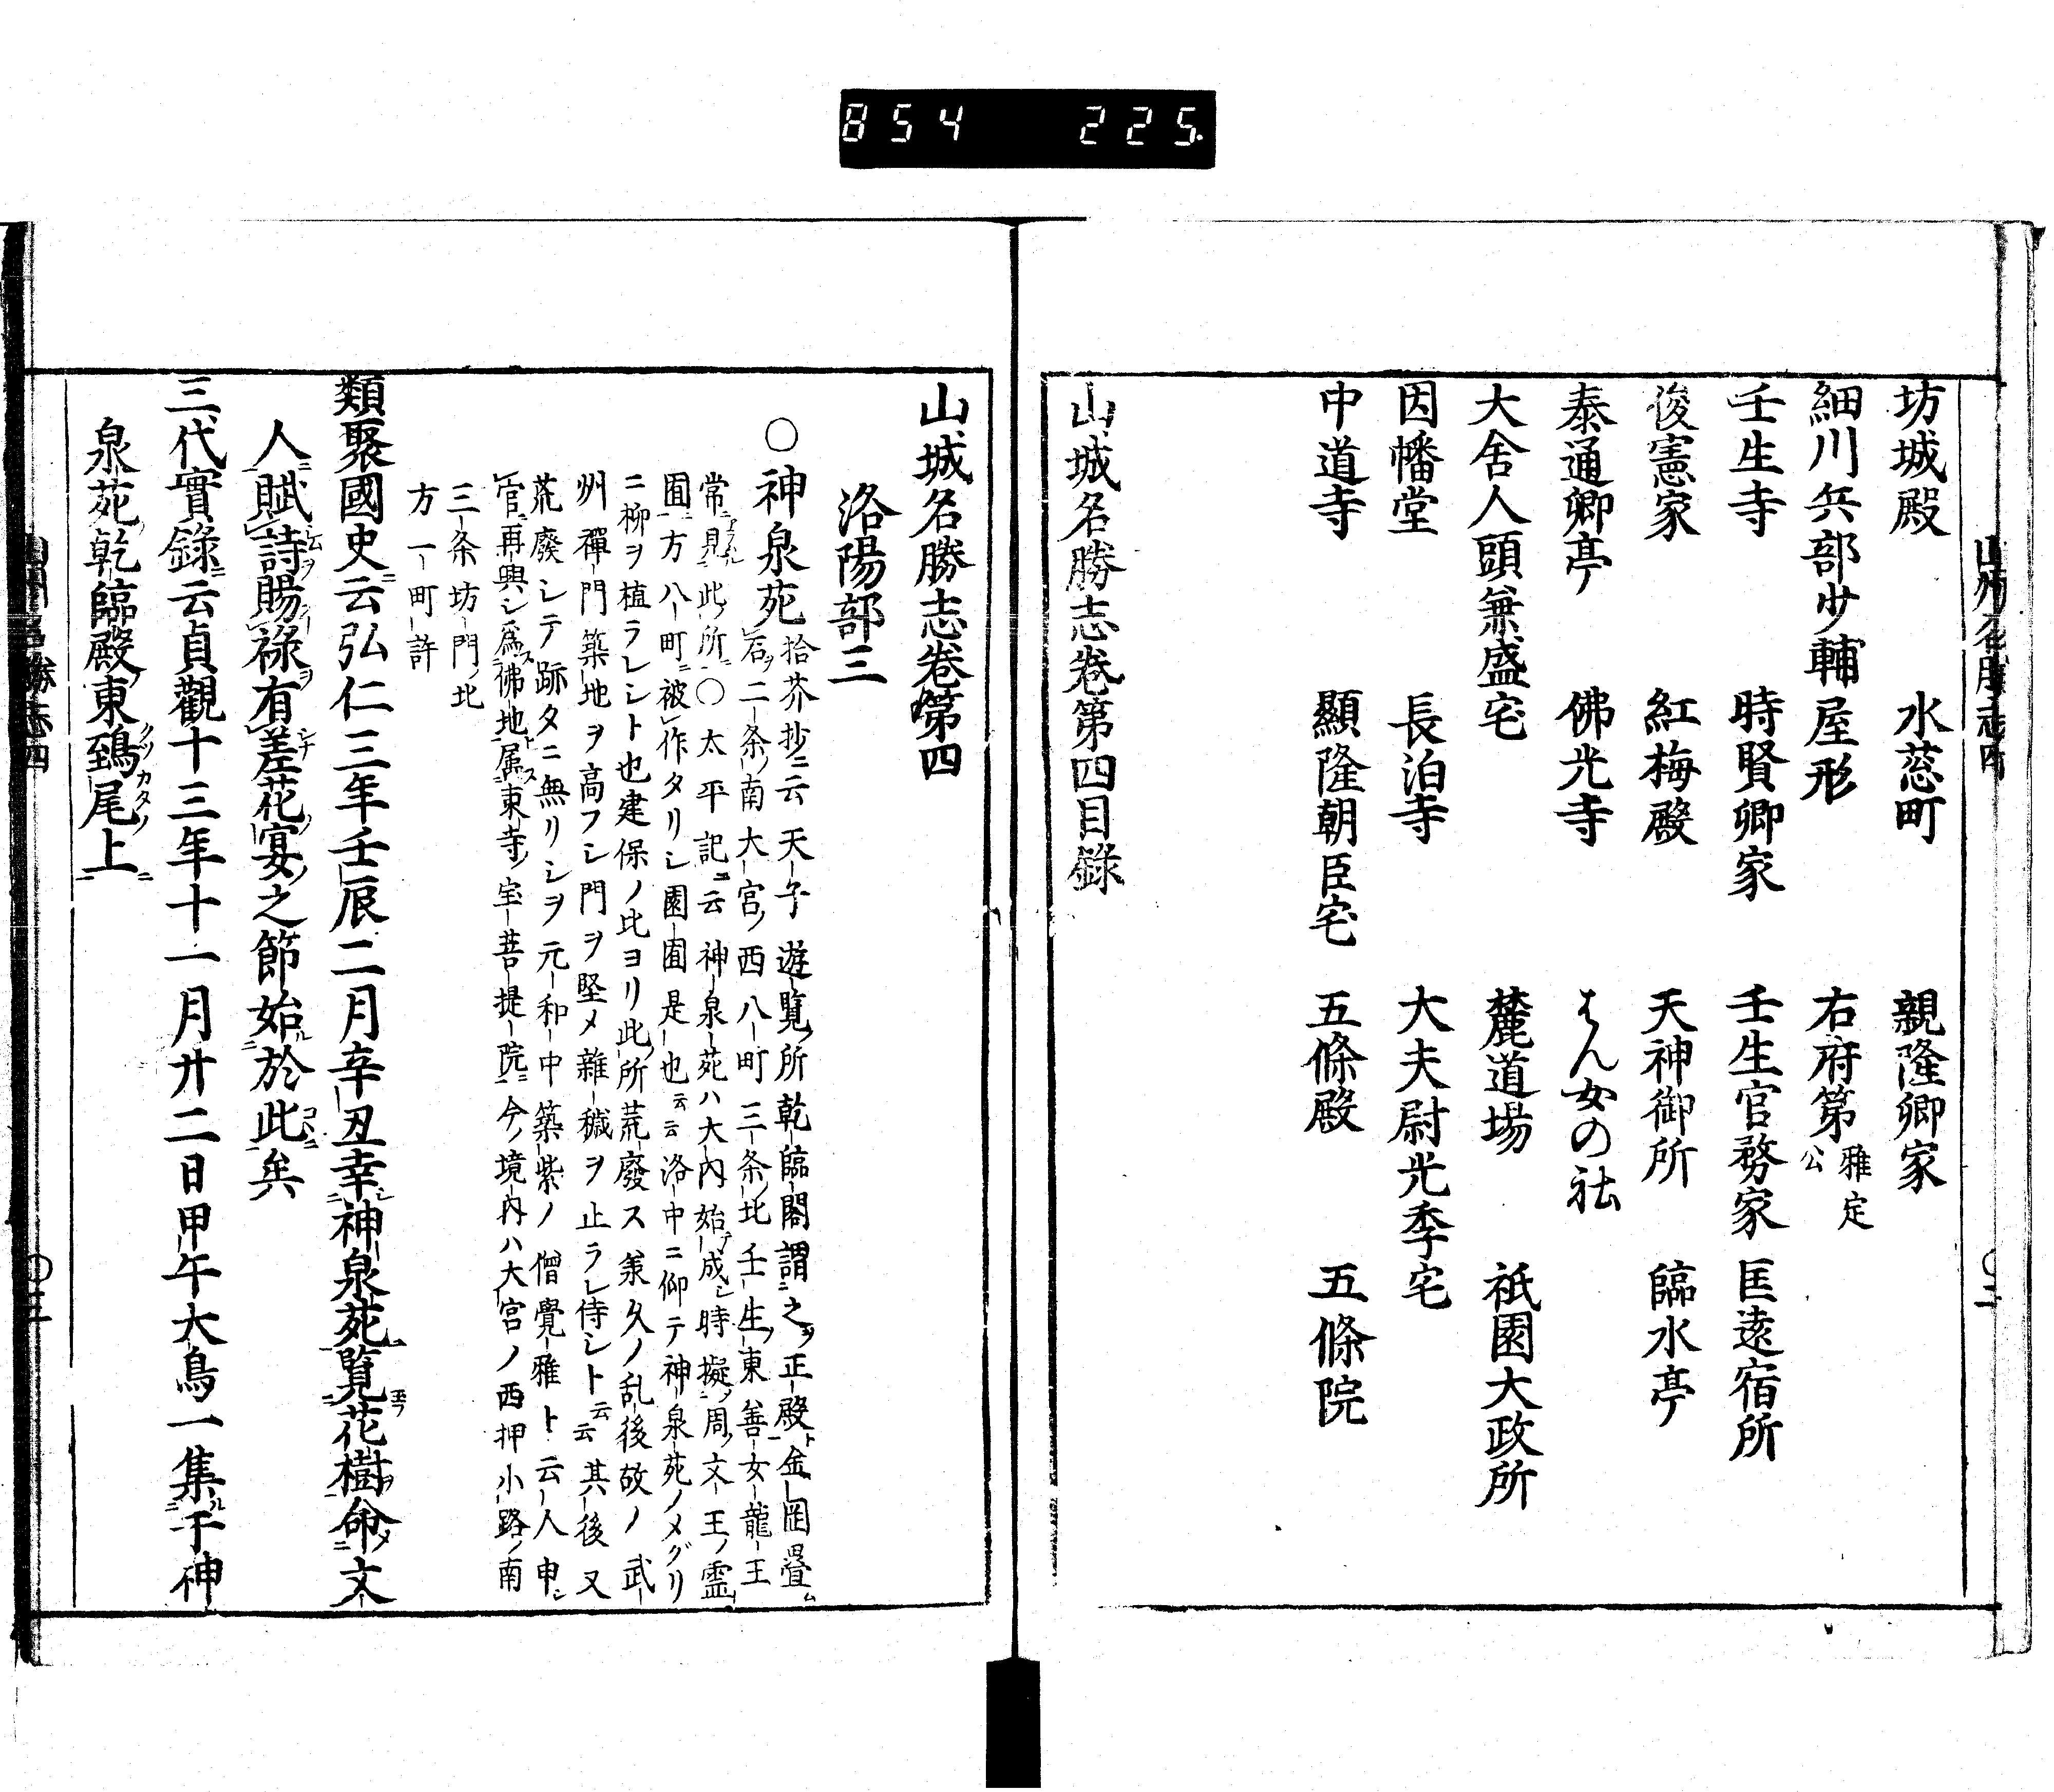 854 225
坊城殿 水葱町 親隆卿家
細川兵部少輔屋形 右府第 雅定公
壬生寺 時賢卿家 壬生官務家 匡遠宿所
俊憲家 紅梅殿 天神御所 臨水亭
泰通卿亭 佛光寺 はん女の社
大舍人頭兼盛宅 麓道場 祇園大政所
因幡堂 長泊寺 大夫尉光季宅
中道寺 顯隆朝臣宅 五條殿 五條院
山城名勝志卷第四目錄
山城名勝志卷第四
洛陽部三
○神泉苑
拾芥抄ニ云天子遊覽ノ所乾臨閣謂之ヲ正殿ト金岡疊ム
石ヲ二条ノ南大宮ノ西八町三条ノ北壬生ノ東善女龍王
常ニ見ル此ノ所ニ○太平記ニ云神泉苑ハ大内始テ成シ時擬ノ周ノ文王ノ霊
囿ニ方八町ニ被作タリシ園囿是也云云洛中ニ仰テ神泉苑ノメグリ
ニ柳ヲ植ラレシト也建保ノ比ヨリ此ノ所荒廢ス兼久ノ乱後故ノ武
州禪門築地ヲ高フシ門ヲ堅メ雜穢ヲ止ラレ侍シト云云其後又
荒廢シテ跡タニ無リシヲ元和中築紫ノ僧覺雅ト云人申シ
官ニ再興シ爲ス佛地ト属ス東寺ノ宝菩提院ニ今ノ境内ハ大宮ノ西押小路ノ南
三条坊門ノ北
方一町許
類聚國史ニ云弘仁三年壬辰二月辛丑幸シ神泉苑ニ覽花樹ヲ命メ文
人ニ賦詩ヲ賜祿ヲ有差花宴ノ之節始ル於此ニ矣
三代實錄ニ云貞觀十三年十一月廿二日甲午大鳥一集ル于神
泉苑ノ乾臨殿ノ東鵄尾ノ上ニ